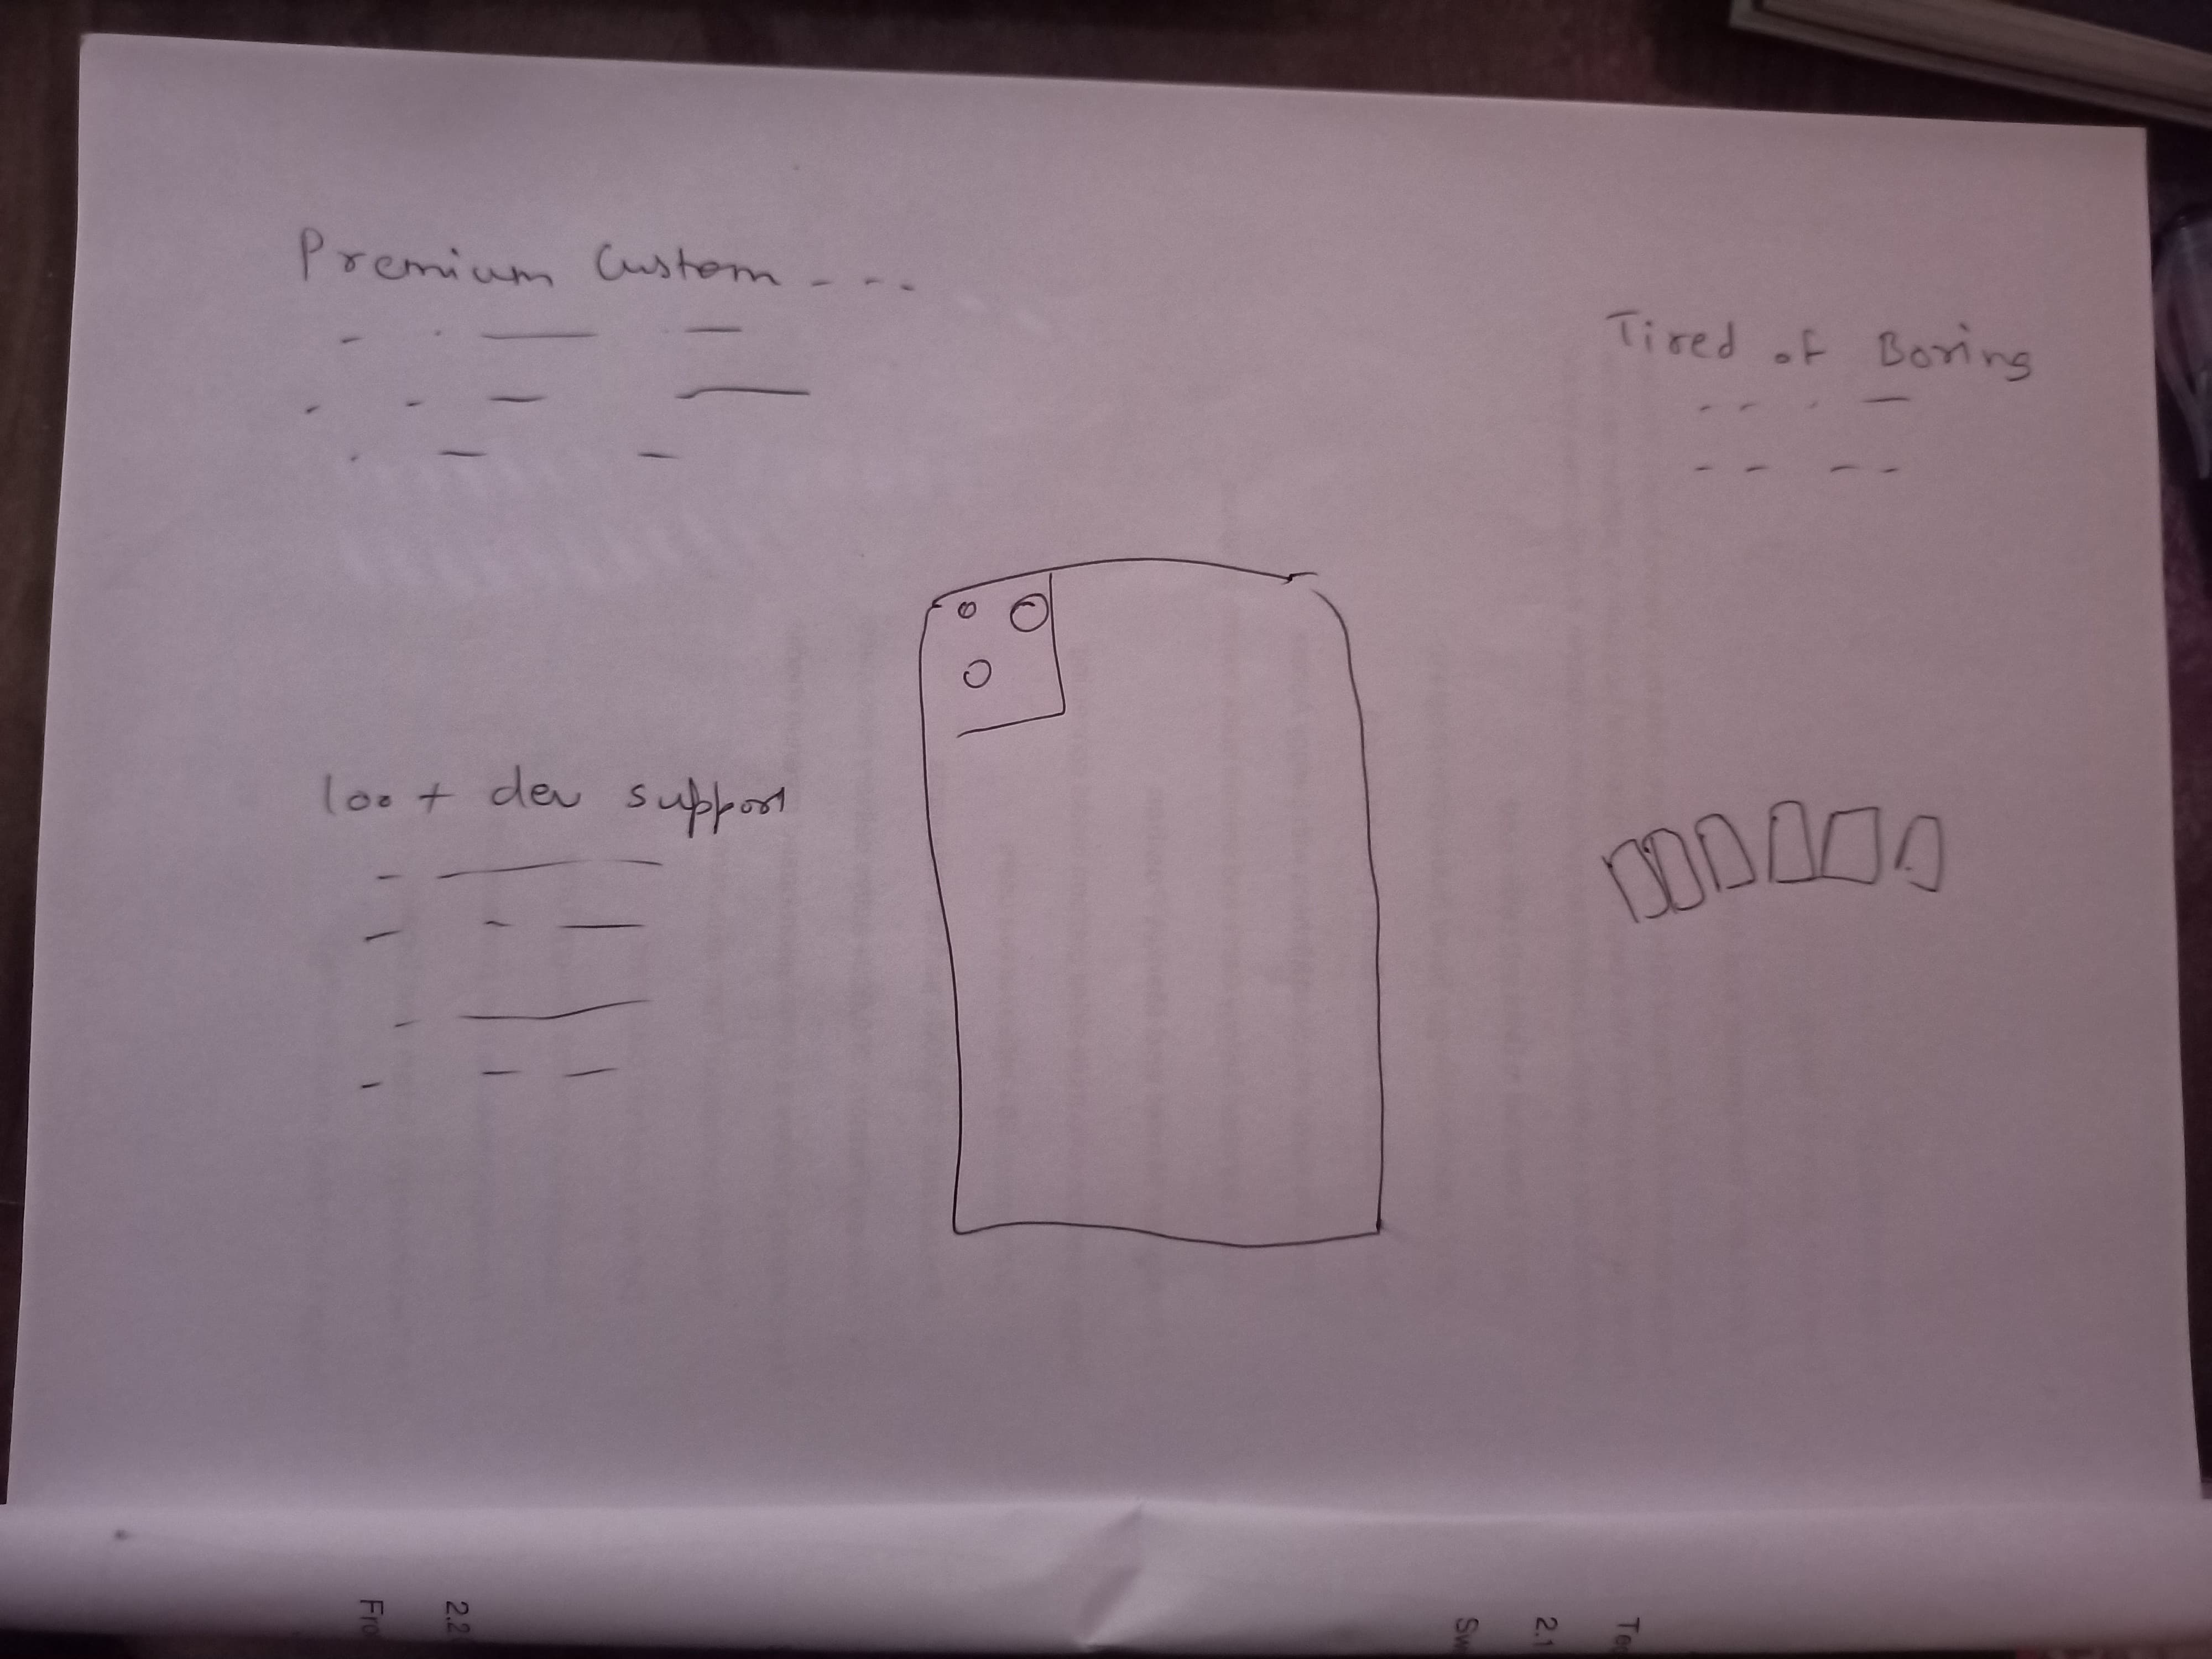 Premium Custom - - -
Tired of Boring
100+ dev support
2.2
Fro
2.1
Sw
Te